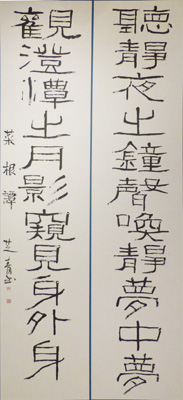 聽靜夜之鐘聲喚醒夢中夢
觀澄潭之月影窺見身外身
菜根譚